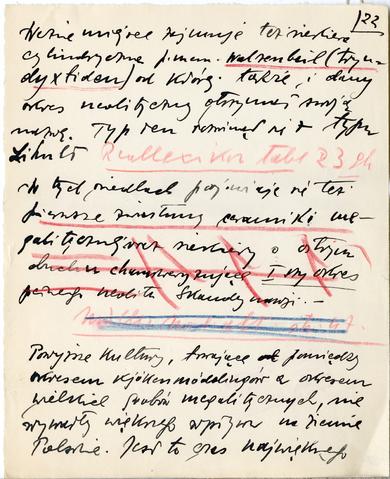 22
Ważne miejsce zajmuje też siekiera
cylindryczna p. nazw. Walzenbeil (Tryn-
dyxtiden) od której także i dany
okres neolityczny otrzymał swoją
nazwę. Typ ten rozwinął się z typu
Lihult Reallexikon tabl 23 gh
W tych osiedlach pojawiają się też
pierwsze zwiastuny ceramiki me-
galitycznej oraz siekiery o ostrym
obuchu charakteryzujące I-szy okres
pełnego neolitu Skandynawji. —
Powyższe kultury, trwające od pomiędzy
okresem Kjökkenmöddingów a okresem
wielkich grobów megalitycznych, nie
wywarły większego wpływu na ziemie
Polskie. Jest to czas największego